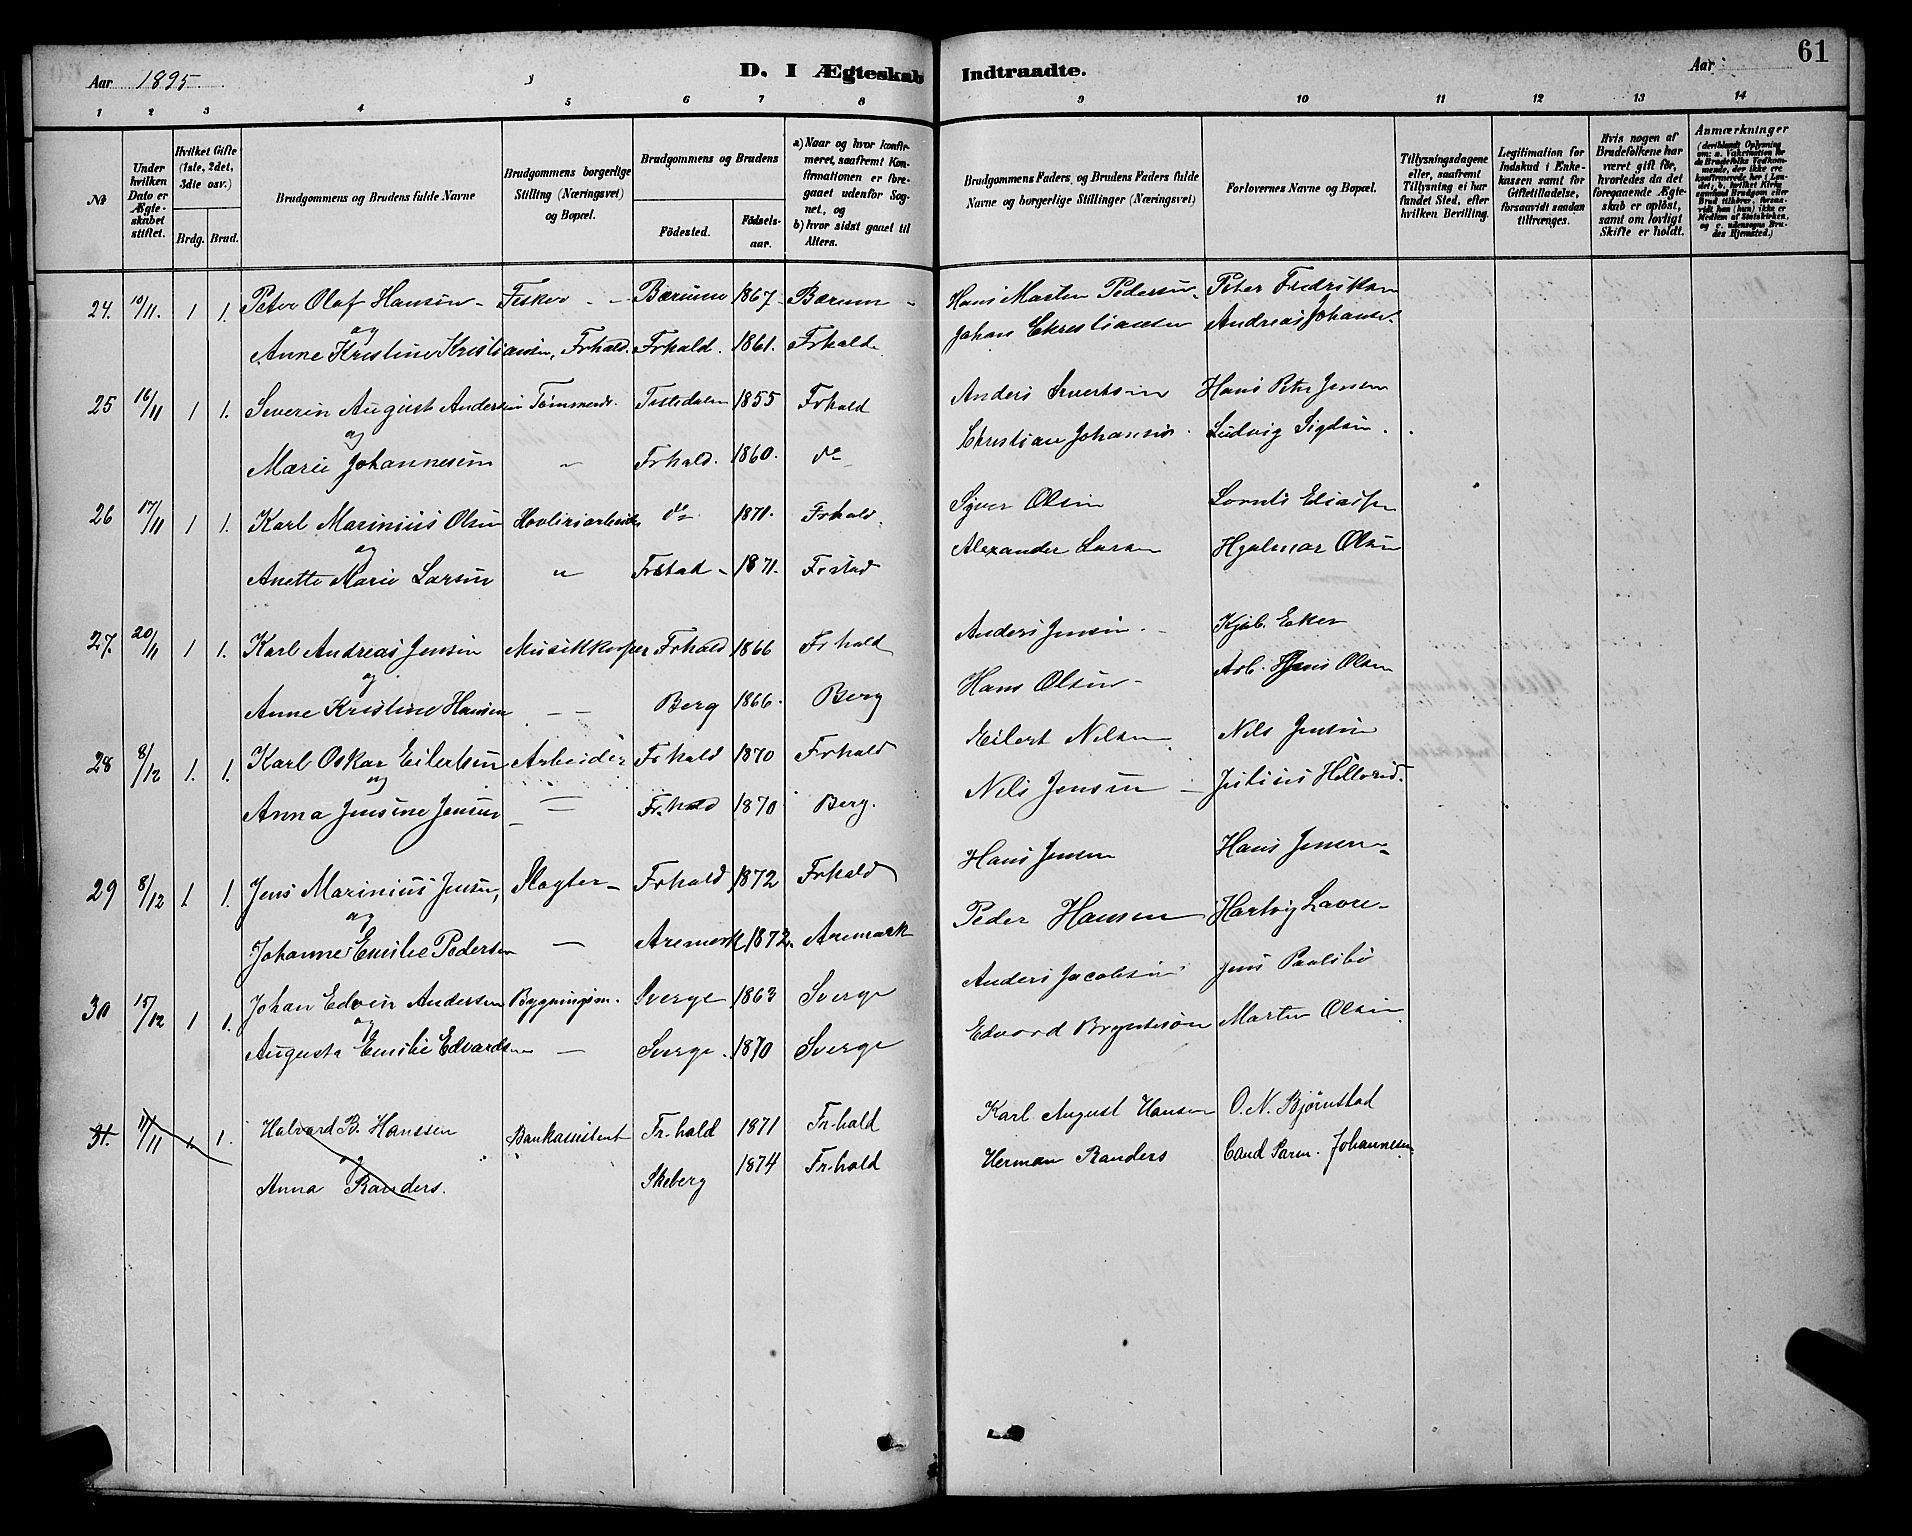 Aar 1895.
D. I Ægteskab Indtraadte.
Aar
61
1 2 3 4 5 6 7 8 9 10 11 12 13 14
№
Under hvilken Dato er Ægteskabet stiftet.
Hvilket Gifte (1ste, 2det, 3die osv.)
Brdg. Brud.
Brudgommens og Brudens fulde Navne
Brudgommens borgerlige Stilling (Næringsvei) og Bopæl.
Brudgommens og Brudens
Fødested. Fødselsaar.
a) Naar og hvor konfirmeret, saafremt Konfirmationen er foregaaet udenfor Sognet, og
b) hvor sidst gaaet til Alters.
Brudgommens Faders og Brudens Faders fulde Navne og borgerlige Stillinger (Næringsvei)
Forlovernes Navne og Bopæl.
Tillysningsdagene eller, saafremt Tillysning ei har fundet Sted, efter hvilken Bevilling.
Legitimation for Indskud i Enkekassen samt for Giftetilladelse, forsaavidt saadan tiltrænges.
Hvis nogen af Brudefolkene har været gift før, hvorledes da det foregaaende Ægteskab er opløst, samt om lovligt Skifte er holdt.
Anmærkninger
24. 10/11. 1 1. Peter Olaf Hansen - Fisker - Bærum 1867. Bærum - Hans Marten Pedersen. Peter Fredriksen
og
Anne Kristine Kristiansen, Frhald. Frhald. 1861. Frhald. Johan Christiansen Andreas Johanse.
25 16/11 1 1. Severin August Andersen Tømmerm. Tistedalen 1855 Frhald Anders Sivertsen Hans Ptr Jensen
og
Marie Johannesen " Frhald. 1860. do Christian Johansen. Ludvig Sigdsen.
26 17/11 1 1. Karl Marinius Olsen Høvleriarbeider do 1871. Frhald. Syver Olsen Lornts Eliassen
og
Anette Marie Larsen " Frstad - 1871. Frstad Alexander Larsen Hjalmar Olsen
27. 20/11 1 1. Karl Andreas Jensen Musikkorper Frhald 1866 Frhald Anders Jensen. Kjøb. Eker
og
Anne Kristine Hansen — Berg 1866. Berg Hans Olsen - Arb. Hans Olsen
28 8/12 1. 1. Karl Oskar Eilertsen Arbeider Frhald 1870 Frhald Eilert Nilsen Nils Jensen
og
Anna Jensine Jensen — Fr.hald 1870 Berg. Nils Jensen - Justius
29 8/12 1 1. Jens Marinius Jensen, Slagter - Frhald 1872 Frhald Hans Jensen Hans Jensen -
og
Johanne Emilie Pedersen — Aremark 1872. Aremark Peder Hansen Hartvig
30 15/12 1 1. Johan Edvin Andersen Bygningsm. Sverge 1863 Sverge Anders Jacobsen Jens Paulsbø
og
Augusta Emilie Edvardsen — Sverge. 1870 Sverge Edvard Bryntesøn Martin Olsen
31. 17/11 1. 1. Halvard B. Hanssen Bankassistent Fr.hald 1871 Fr.hald Karl August Hansen O. N. Bjørnstad
og
Anna Randers. Skeberg 1874 Fr.hald Herman Randers Cand Parm. Johannesen